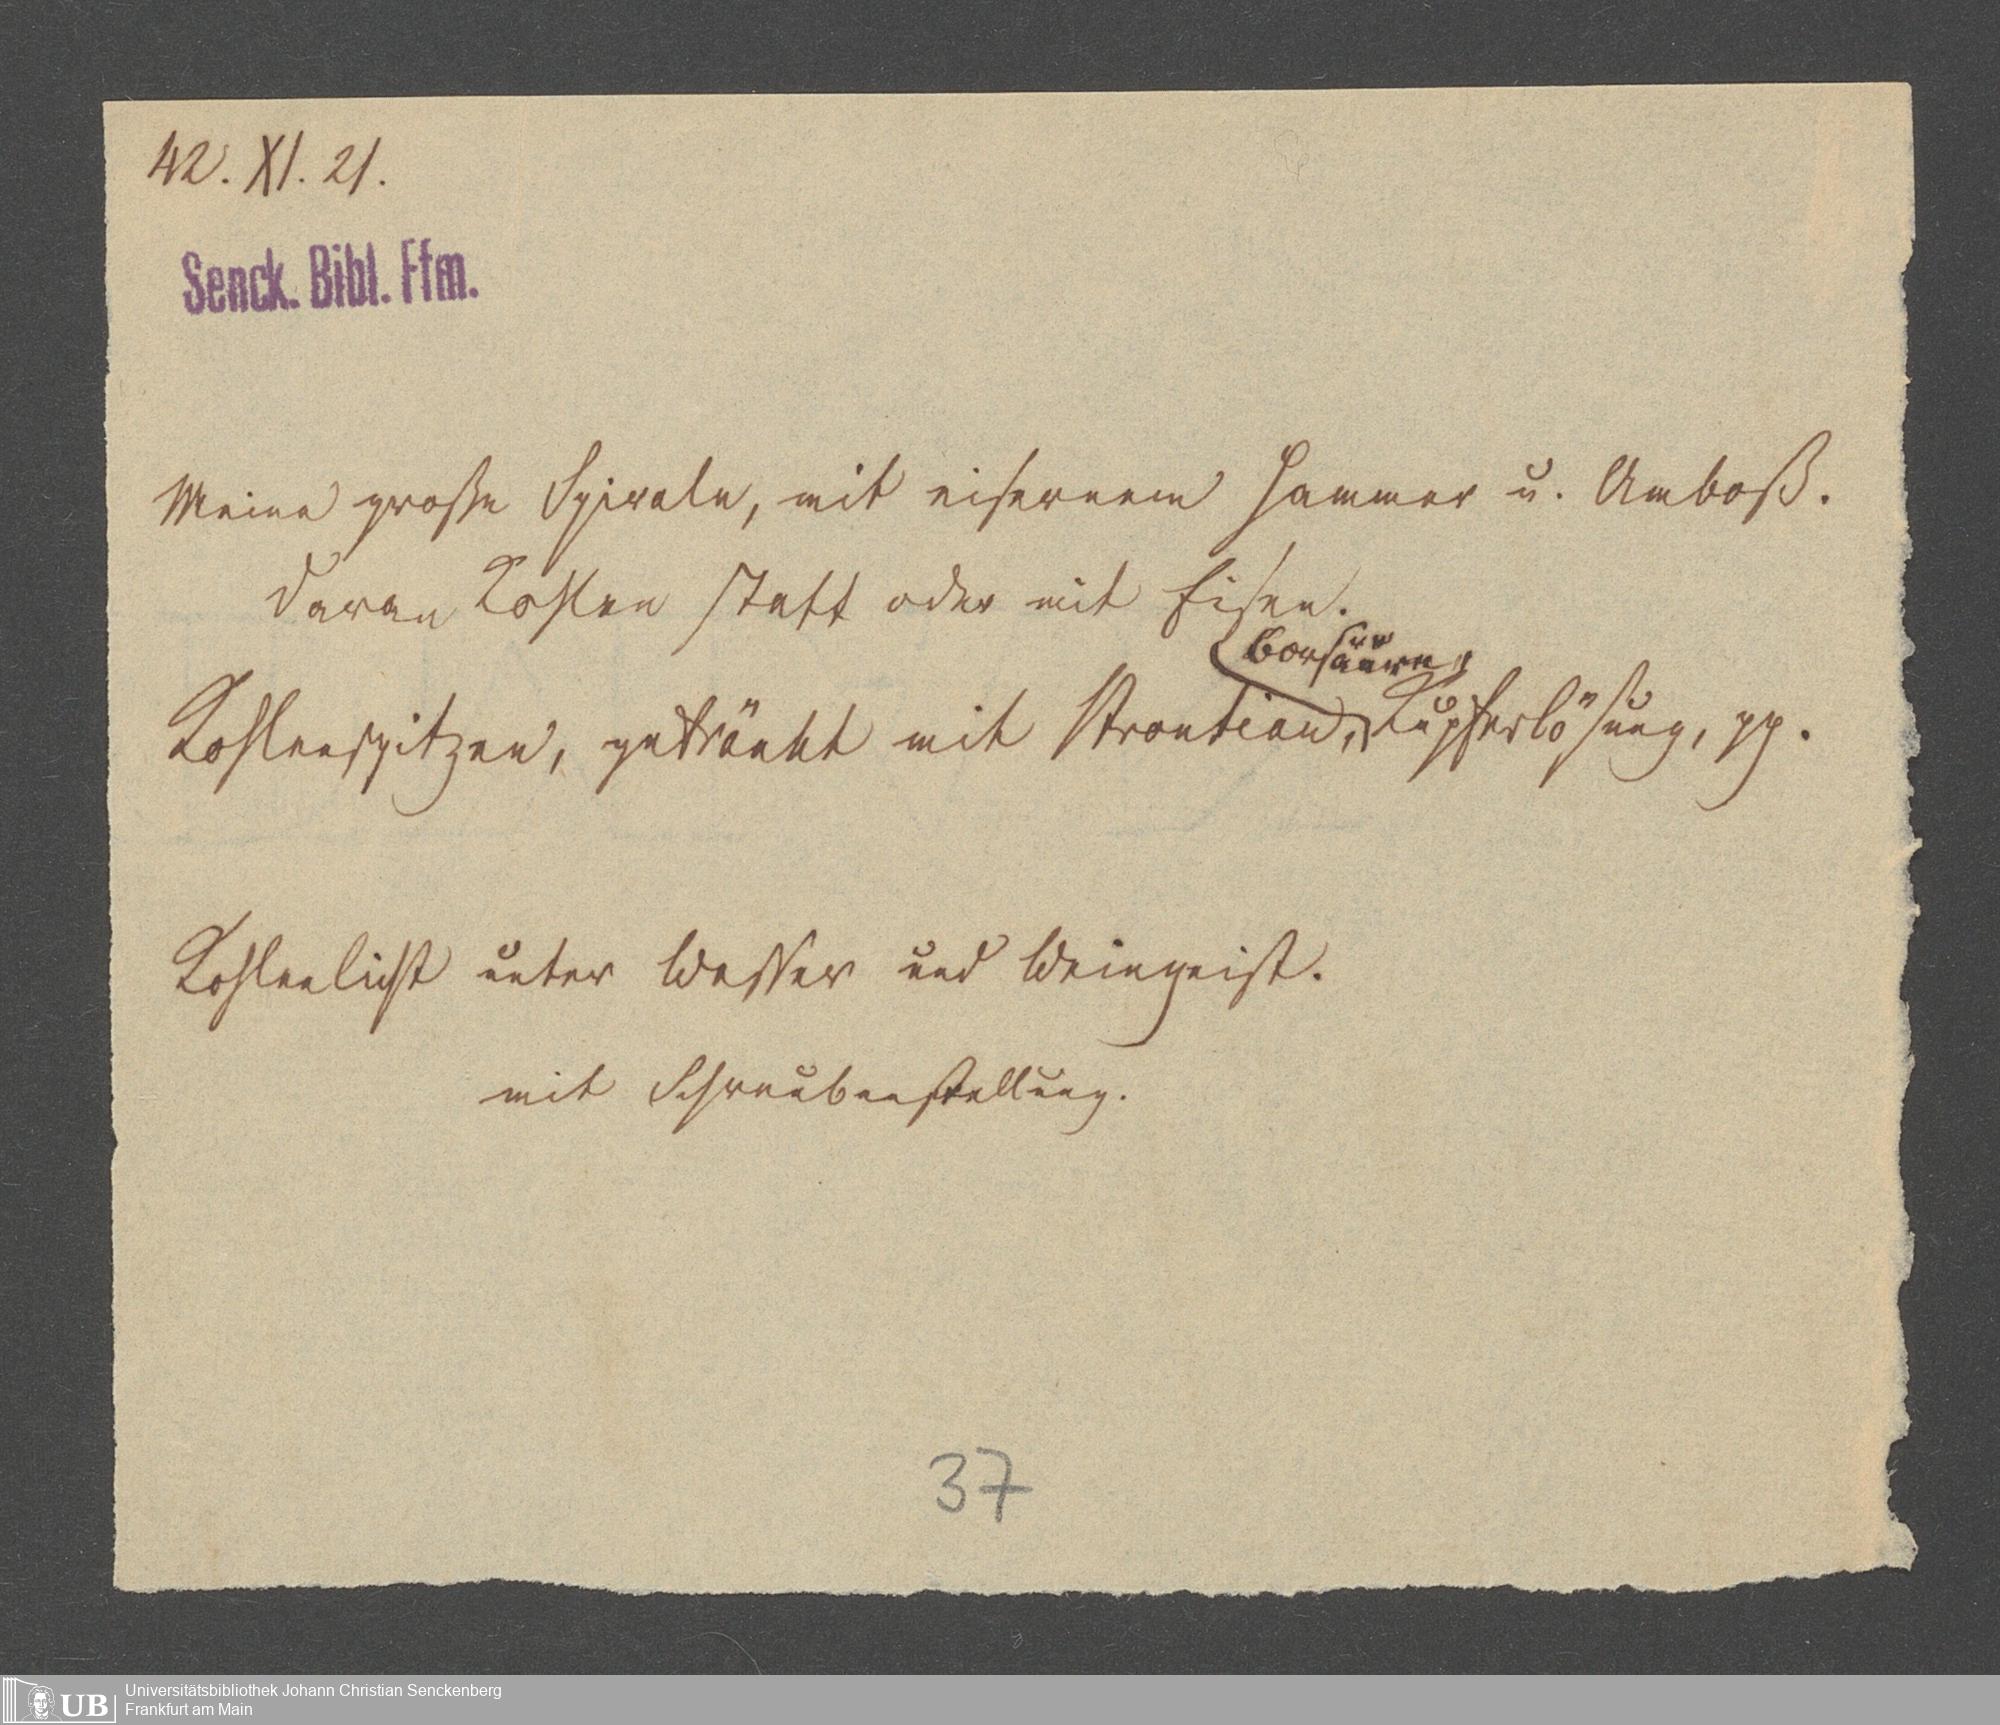 42. XI. 21.
Senck. Bibl. Ffm.
Meine große Spirale, mit eisernem Hammer u. Amboß.
daran Kohlen statt oder mit Eisen.
Borsäure,
Kohlenspitzen, getränkt mit Strontian, Kupferlösung, pp.
Kohlenlicht unter Wasser und Weingeist.
mit Schraubenstellung.
37
UB Universitätsbibliothek Johann Christian Senckenberg
Frankfurt am Main